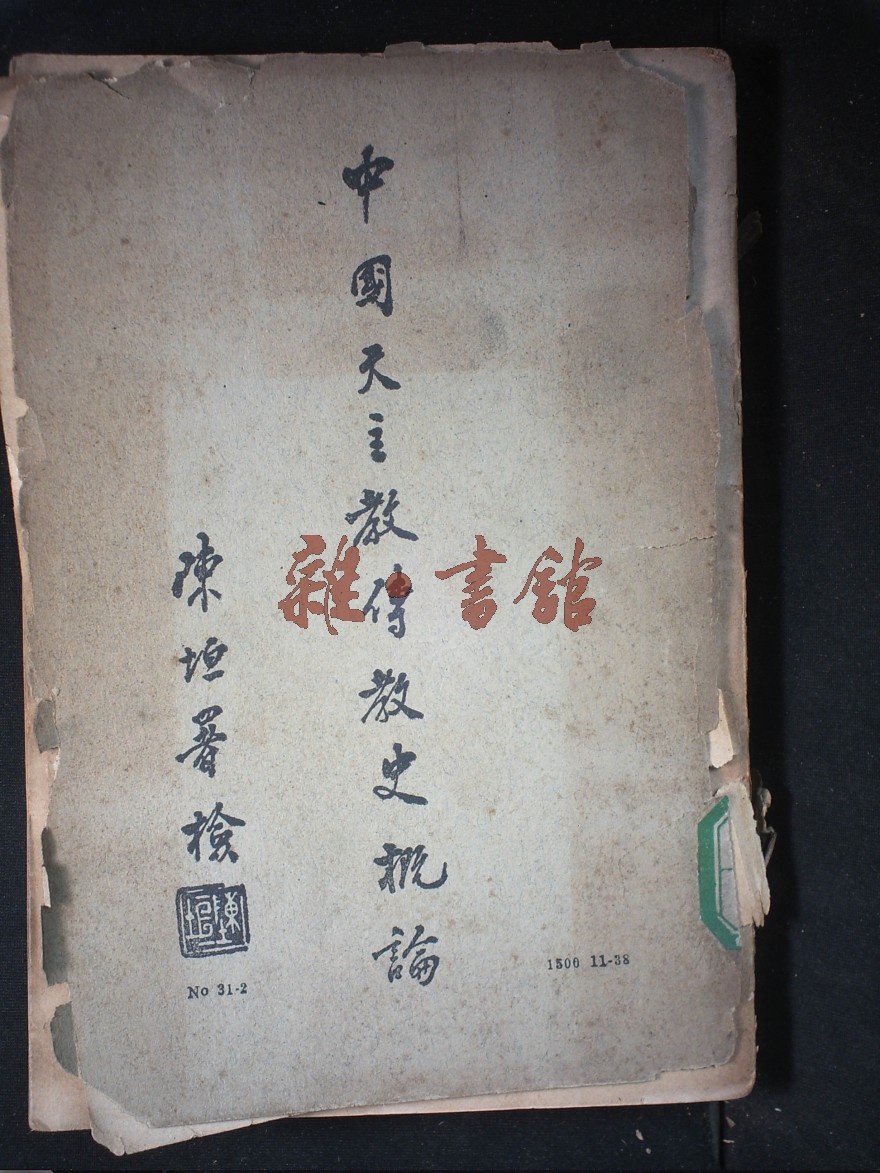 中國天主教傳教史概論
陳垣署檢
陳垣
雜·書館
No 31-2
1500 11-38